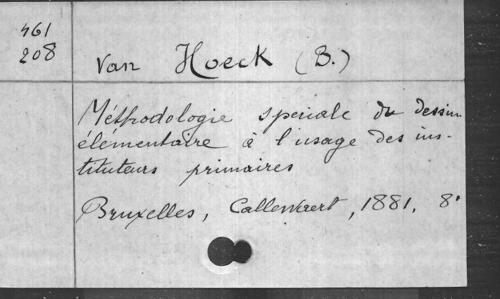 461
208
Van Hoeck (B.)
Méthodologie spéciale du dessin
élémentaire à l'usage des ins-
tituteurs primaires
Bruxelles, Callewaert, 1881, 8°